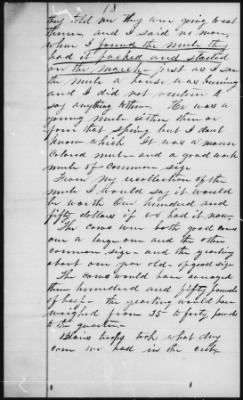 18
they told me they were going to eat
them and I said no more,
when I found the mule they
had it packed and started
on the march - just as I saw
the mule a house was burning
and I did not venture to
say anything to them. He was a
young mule either three or
four that Spring but I don't
know which It was a mouse
colored mule - and a good work
mule of common size
From my recollection of the
mule I would say it would
be worth One hundred and
fifty dollars if we had it now -
The cows were both good cows
one a large one and the other
common size - and the yearling
about one year old - of good size
The cows would have averaged
three hundred and fifty pounds
of beef - the yearling would have
weighed from 35 to forty pounds
to the quarter -
troops took what dry
corn we had in the crib,